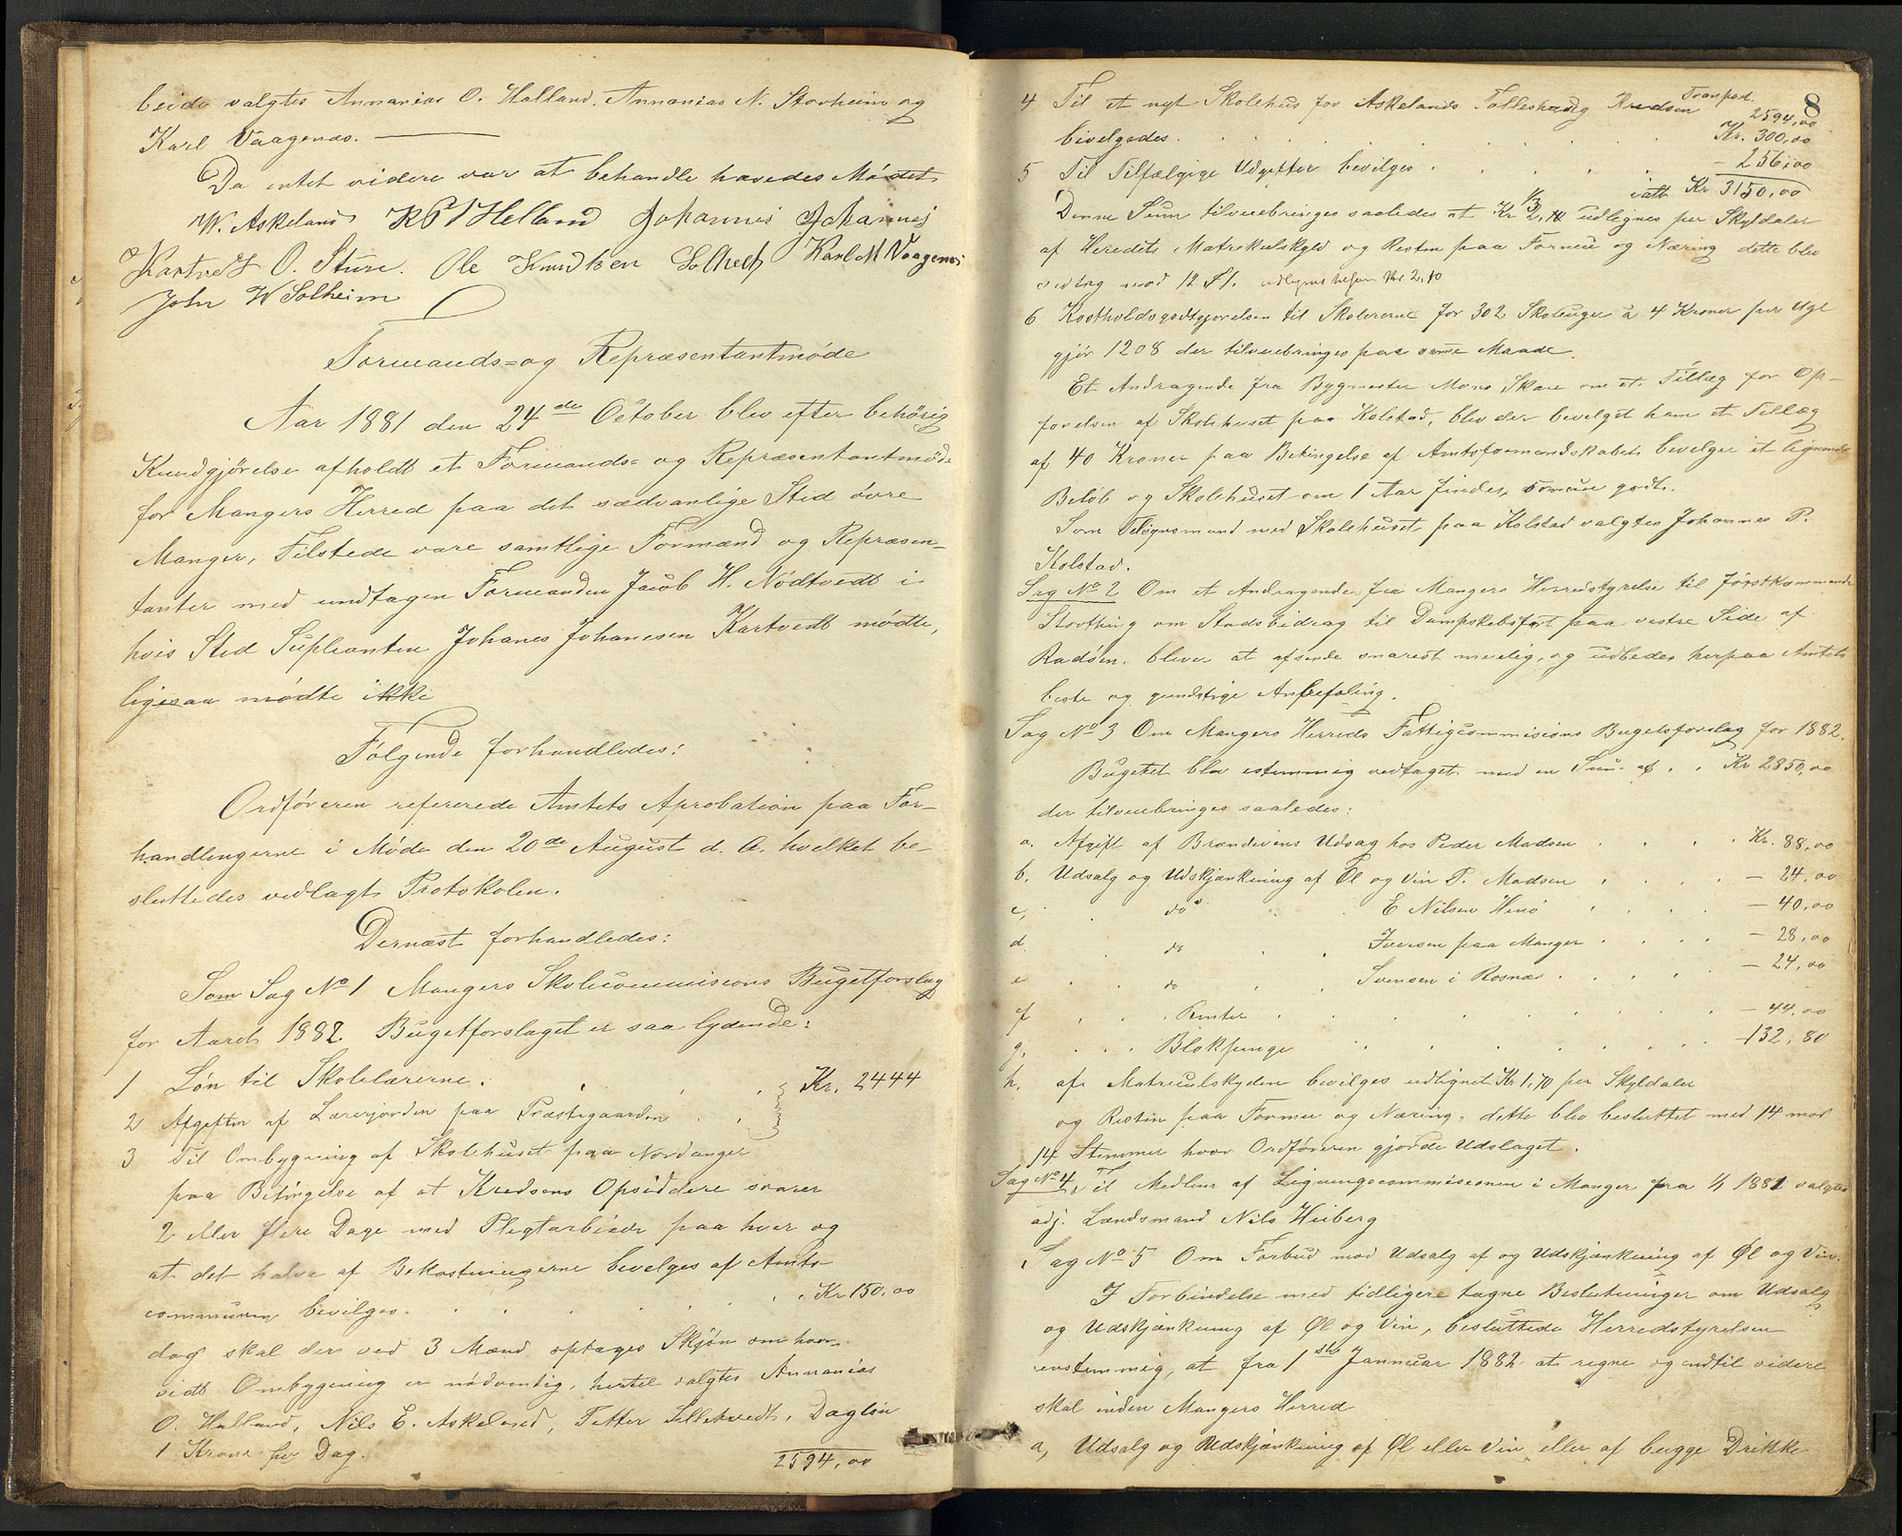 beide valgtes Annanias O. Halland, Annanias N. Storheim og
Karl Vaagenæs.
Da intet videre var at behandle hævedes Mødet
W. Askeland Johannes Johannes
Kartvedt O. Sture. Ole Knudtsen Solhed Karl M Vaagenæs
John W Solheim
Formands= og Repræsentantmøde
Aar 1881 den 24de October blev efter behörig
Kundgjörelse afholdt et Formands= og Repræsentantmöde
for Mangers Herred paa det sædvanlige Sted övre
Manger, Tilstede vare samtlige Formænd og Repræsen-
tanter med undtagen Formanden Jacob H. Nödtvedt i
hvis Sted Supleanten Johanes Johanesen Kartvedt mødte,
ligesaa mødte ikke
Følgende forhandledes:
Ordföreren refererede Amtets Aprobation paa For-
handlingerne i Møde den 20de August d. A. hvilket be-
sluttedes vedlagt Protokolen.
Dernæst forhandledes:
Som Sag No 1 Mangers Skolecommisions Bugetforslag
for Aaret 1882. Bugetforslaget er saa lydende:
1 Løn til Skolelærerne. Kr. 2444
2 Afgiften af Lærerjorden paa Præstegaarden
3 Til Ombygning af Skolehuset paa Nordanger
paa Betingelse af at Kredsens Opsiddere svarer
2 eller flere Dage med Pligtarbeide paa hver og
at det halve af Bekostningerne bevilges af Amts
communen bevilges. Kr 150,00
dog skal der ved 3 Mænd optages Skjøn om hvor-
vidt Ombygning er nødvendig, hertil valgtes Annanias
O. Halland, Nils E. Askeland, Petter Sellevedt, Dagløn
1 Krone per Dag.
2594,00
8
Transport.
4 Til et nyt Skolehus for Askelands Kredsen 2594,00
bevilgedes. Kr. 300,00
5 Til Tilfælgige Udgifter bevilges - 256,00
ialt Kr 3150,00
Denne Sum tilveiebringes saaledes at Kr 2,10 udlignes per Skyldaler
af Heredets Matrikulskyld og Resten paa Formue og Næring dette blev
vedtag mod 12 St. Kr 2,10
6 Kostholdsgodtgjørelsen til Skolererne for 302 Skoleuger a 4 Kroner per Uge
gjör 1208 der tilveiebringes paa samme Maade.
Et Andragende fra Bygmester Mons Skare om et Tillæg for Op-
forelsen af Skolehuset paa Kolstad, blev der bevilget ham et Tillæg
af 40 Kroner paa Betingelse af Amtsformandskabet bevilger et lignende
Beløb og Skolehuset om 1 Aar findes godt.
Som Tilsynsmand ved Skolehuset paa Kolstad valgtes Johannes P.
Kolstad.
Sag No 2 Om et Andragende fra Mangers Herredstyrelse til førstkommende
Storthing om Stadsbidrag til Dampskibsfart paa vestre Side af
Radöen, bliver at afsende snarest muelig, og udbedes herpaa Amtets
beste og gunstige Anbefaling.
Sag No 3 Om Mangers Herreds Fattigcommisions Bugetsforslag for 1882.
Bugetet blev estemmig vedtaget med en Sum af Kr 2850,00
der tilveiebringes saaledes:
a. Afgift af Brændevins Udsag hos Peder Madsen Kr. 88,00
b. Udsalg og Udskjænkning af Øl og Vin P. Madsen - 24,00
c, do E Nilsen Henö - 40,00
d. do Iversen paa Manger - 28,00
e do Svensen i Rosnæs - 24,00
f Renter - 44,00
g, Blokpenge 132,80
h. af Matriculskylden bevilges udlignet Kr 1,70 per Skyldaler
og Resten paa Formue og Næring, dette blev besluttet med 14 mod
14 Stemmer hvor Ordföreren gjorde Udslaget.
Sag No 4, Til Medlem af Ligningscommisionen i Manger fra 1/1 1882 valgtes
adj. Lændsmand Nils Heiberg
Sag No 5 Om Forbud mod Udsalg af og Udskjænkning af Øl og Vin.
I Forbindelse med tidligere tagne Beslutninger om Udsalg
og Udskjænkning af Øl og Vin, besluttede Herredstyrelsen
enstemmig, at fra 1ste Januar 1882 at regne og indtil videre
skal inden Mangers Herred
a, Udsalg og Udskjænkning af Øl eller Vin eller af begge Drikke